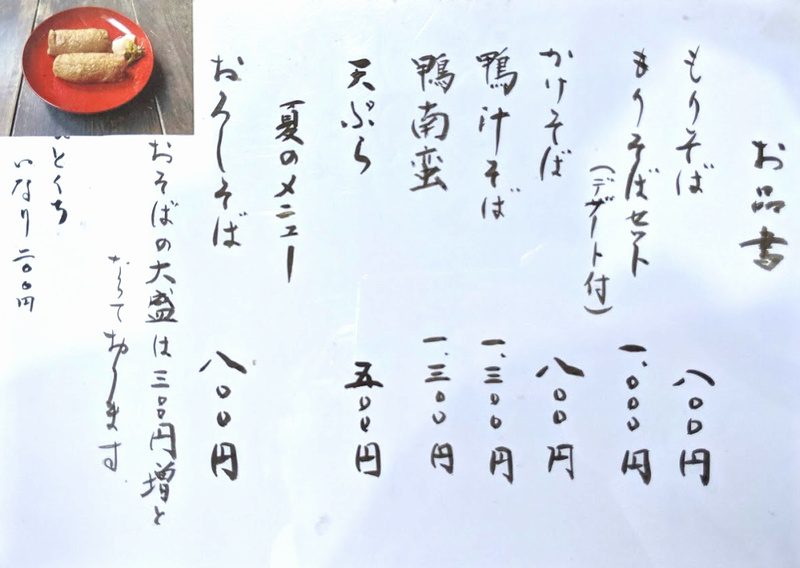 お品書
もりそば 八〇〇円
もりそばセット (デザート付) 一、〇〇〇円
かけそば 八〇〇円
鴨汁そば 一、三〇〇円
鴨南蛮 一、三〇〇円
天ぷら 五〇〇円
夏のメニュー
おろしそば 八〇〇円
おそばの大盛は三〇〇円増と
なっております
ひとくち
いなり 二〇〇円